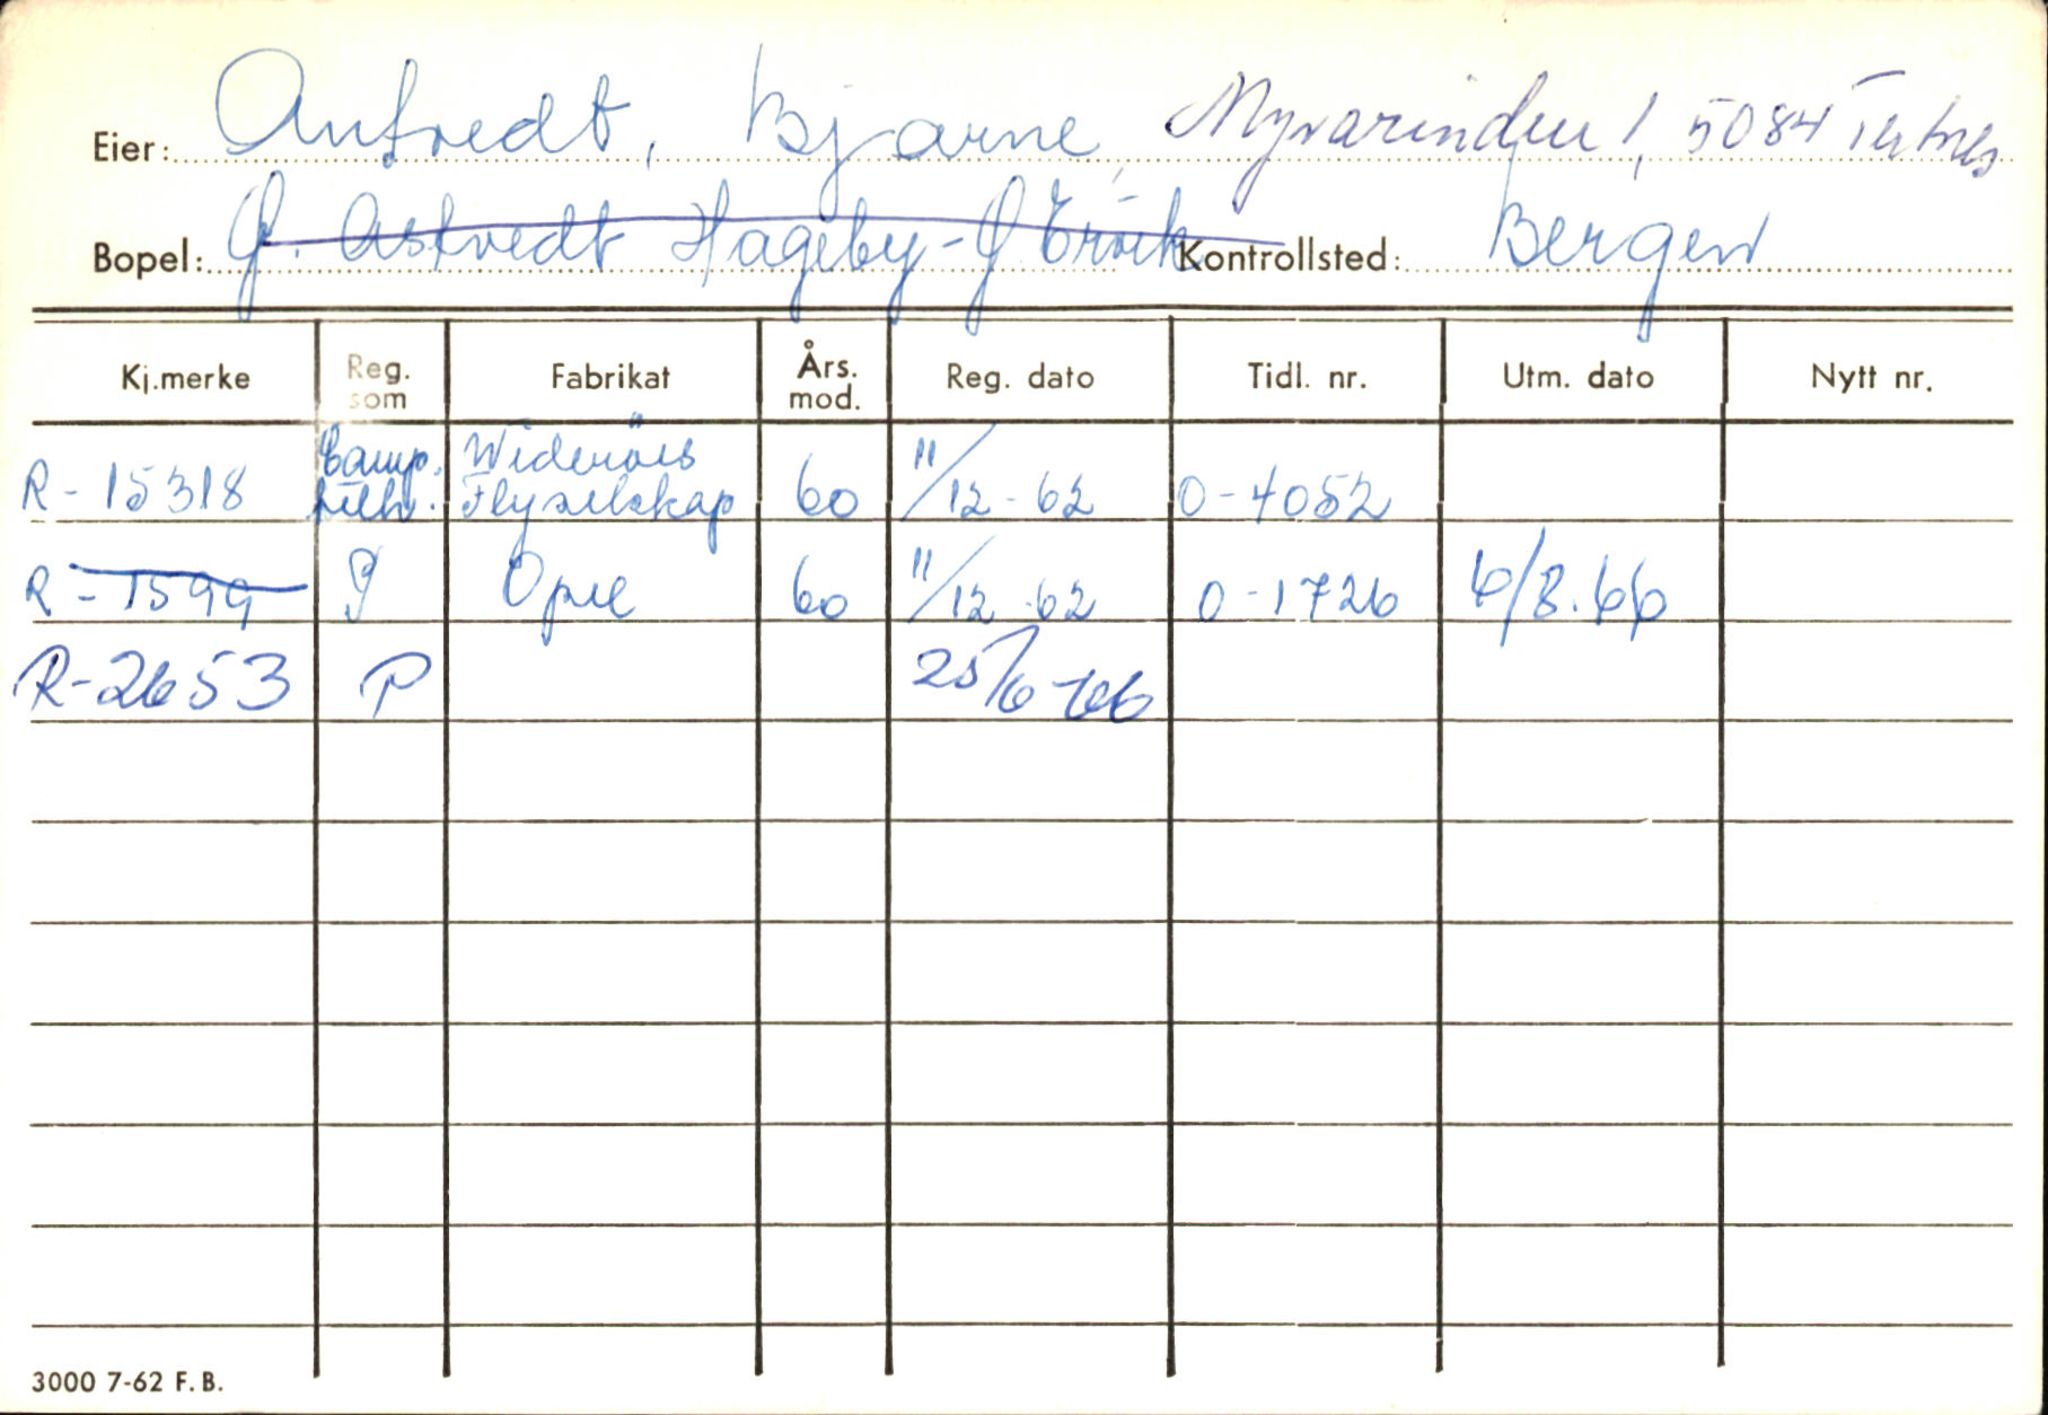 Eier: Anfredt, Bjarne, Myrarinden 1, 5084 Tertnes
Bopel: P. Astvedt Hageby-P Kontrollsted: Bergen
Kj.merke Reg. som Fabrikat Års. mod. Reg. dato Tidl. nr. Utm. dato Nytt nr.
R-15318 Camp. tilh. Widerøes Flyselskap 60 11/12-62 O-4052
R-1599 P Opel 60 11/12-62 O-1726 6/8.66
R-2653 P 25/6-66
3000 7-62 F.B.